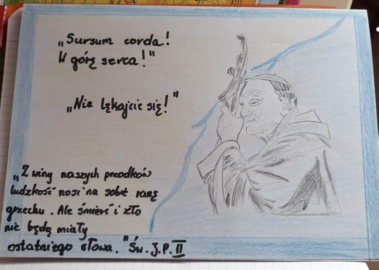 „Sursum corda!
W górę serca!"
„Nie lękajcie się!"
„Z winy naszych przodków
ludzkość nosi na sobie ranę
grzechu. Ale śmierć i zło
nie będą miały
ostatniego słowa." Św. J.P. II